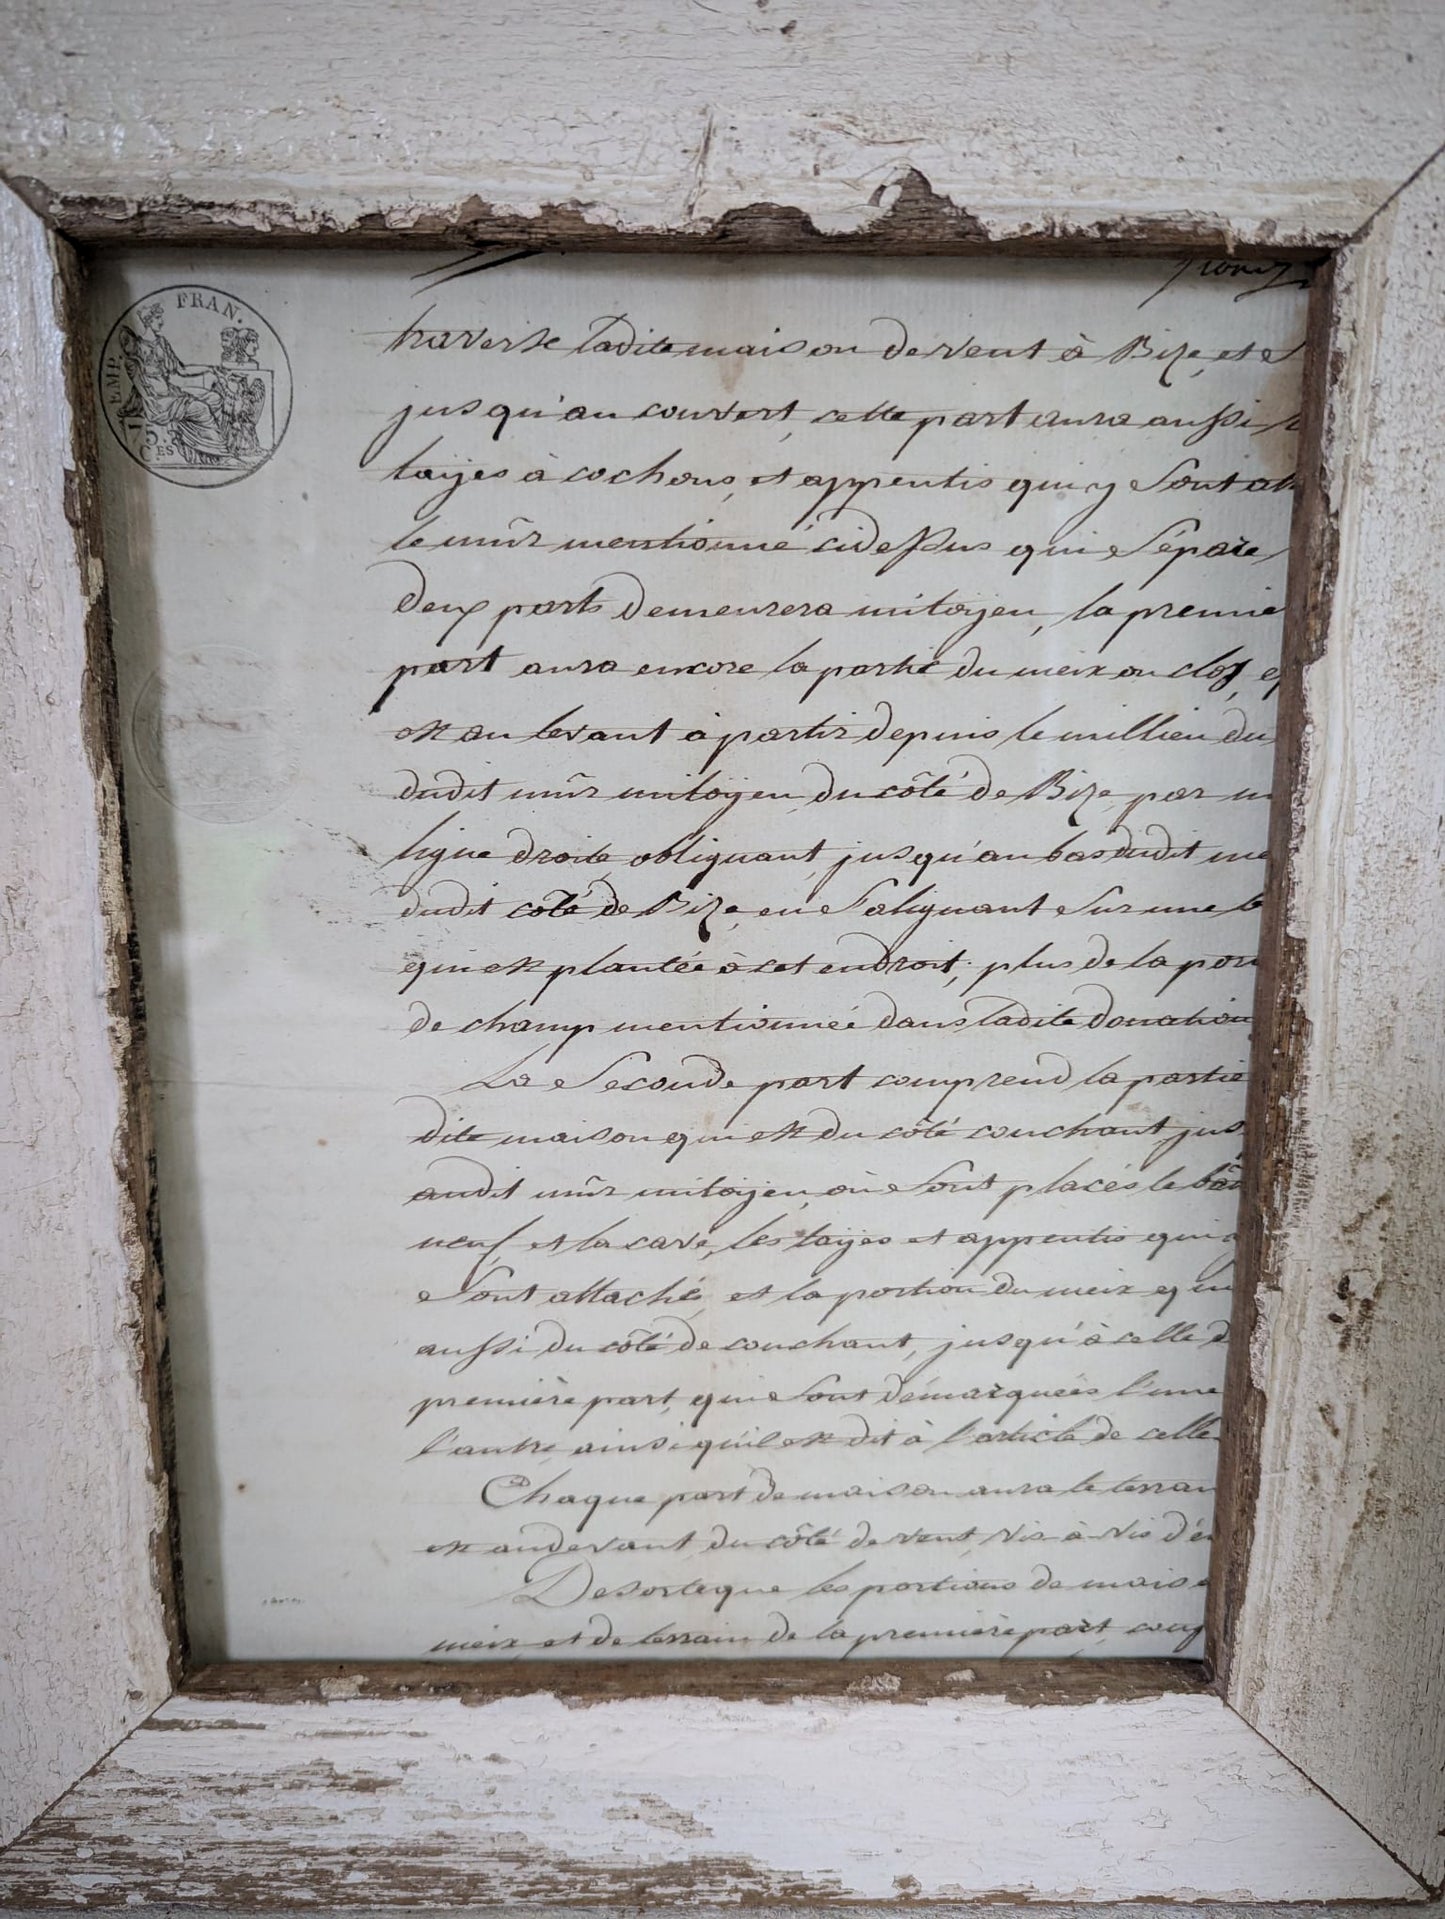 EMP. FRAN.
75
C.ES
traverse ladite maison de vent à Bize, et
jusqu'au couvert, cette part aura aussi
taijes à cochons, et appentis qui y sont
le mûr mentionné cidessus qui sépare
deux parts demeurera mitoijen, la premie
part aura encore la partie du meix ou clos,
est au levant à partir depuis le millieu du
dudit mûr mitoÿen du côté de Bize, par
ligne droite, obliquant, jusqu'au bas dudit
dudit côté de Bize, en s'alignant sur une
qui est plantée à cet endroit; plus de la
de champ mentionnée dans ladite donation
La seconde part comprend la partie
dite maison qui est du côté couchant, jus
audit mûr mitoijen, où sont placés le
neuf, et la cave, les taijes et appentis qui
sont attaché, et la portion du meix
aussi du côté de couchant, jusqu'à celle
première part, qui sont démarquées l'une
l'autre, ainsi qu'il est dit à l'article de celle
Chaque part de maison aura le terrain
est au devant, du côté de vent, vis à vis
De sorte que les portions de
meix, et de terrain de la première part,